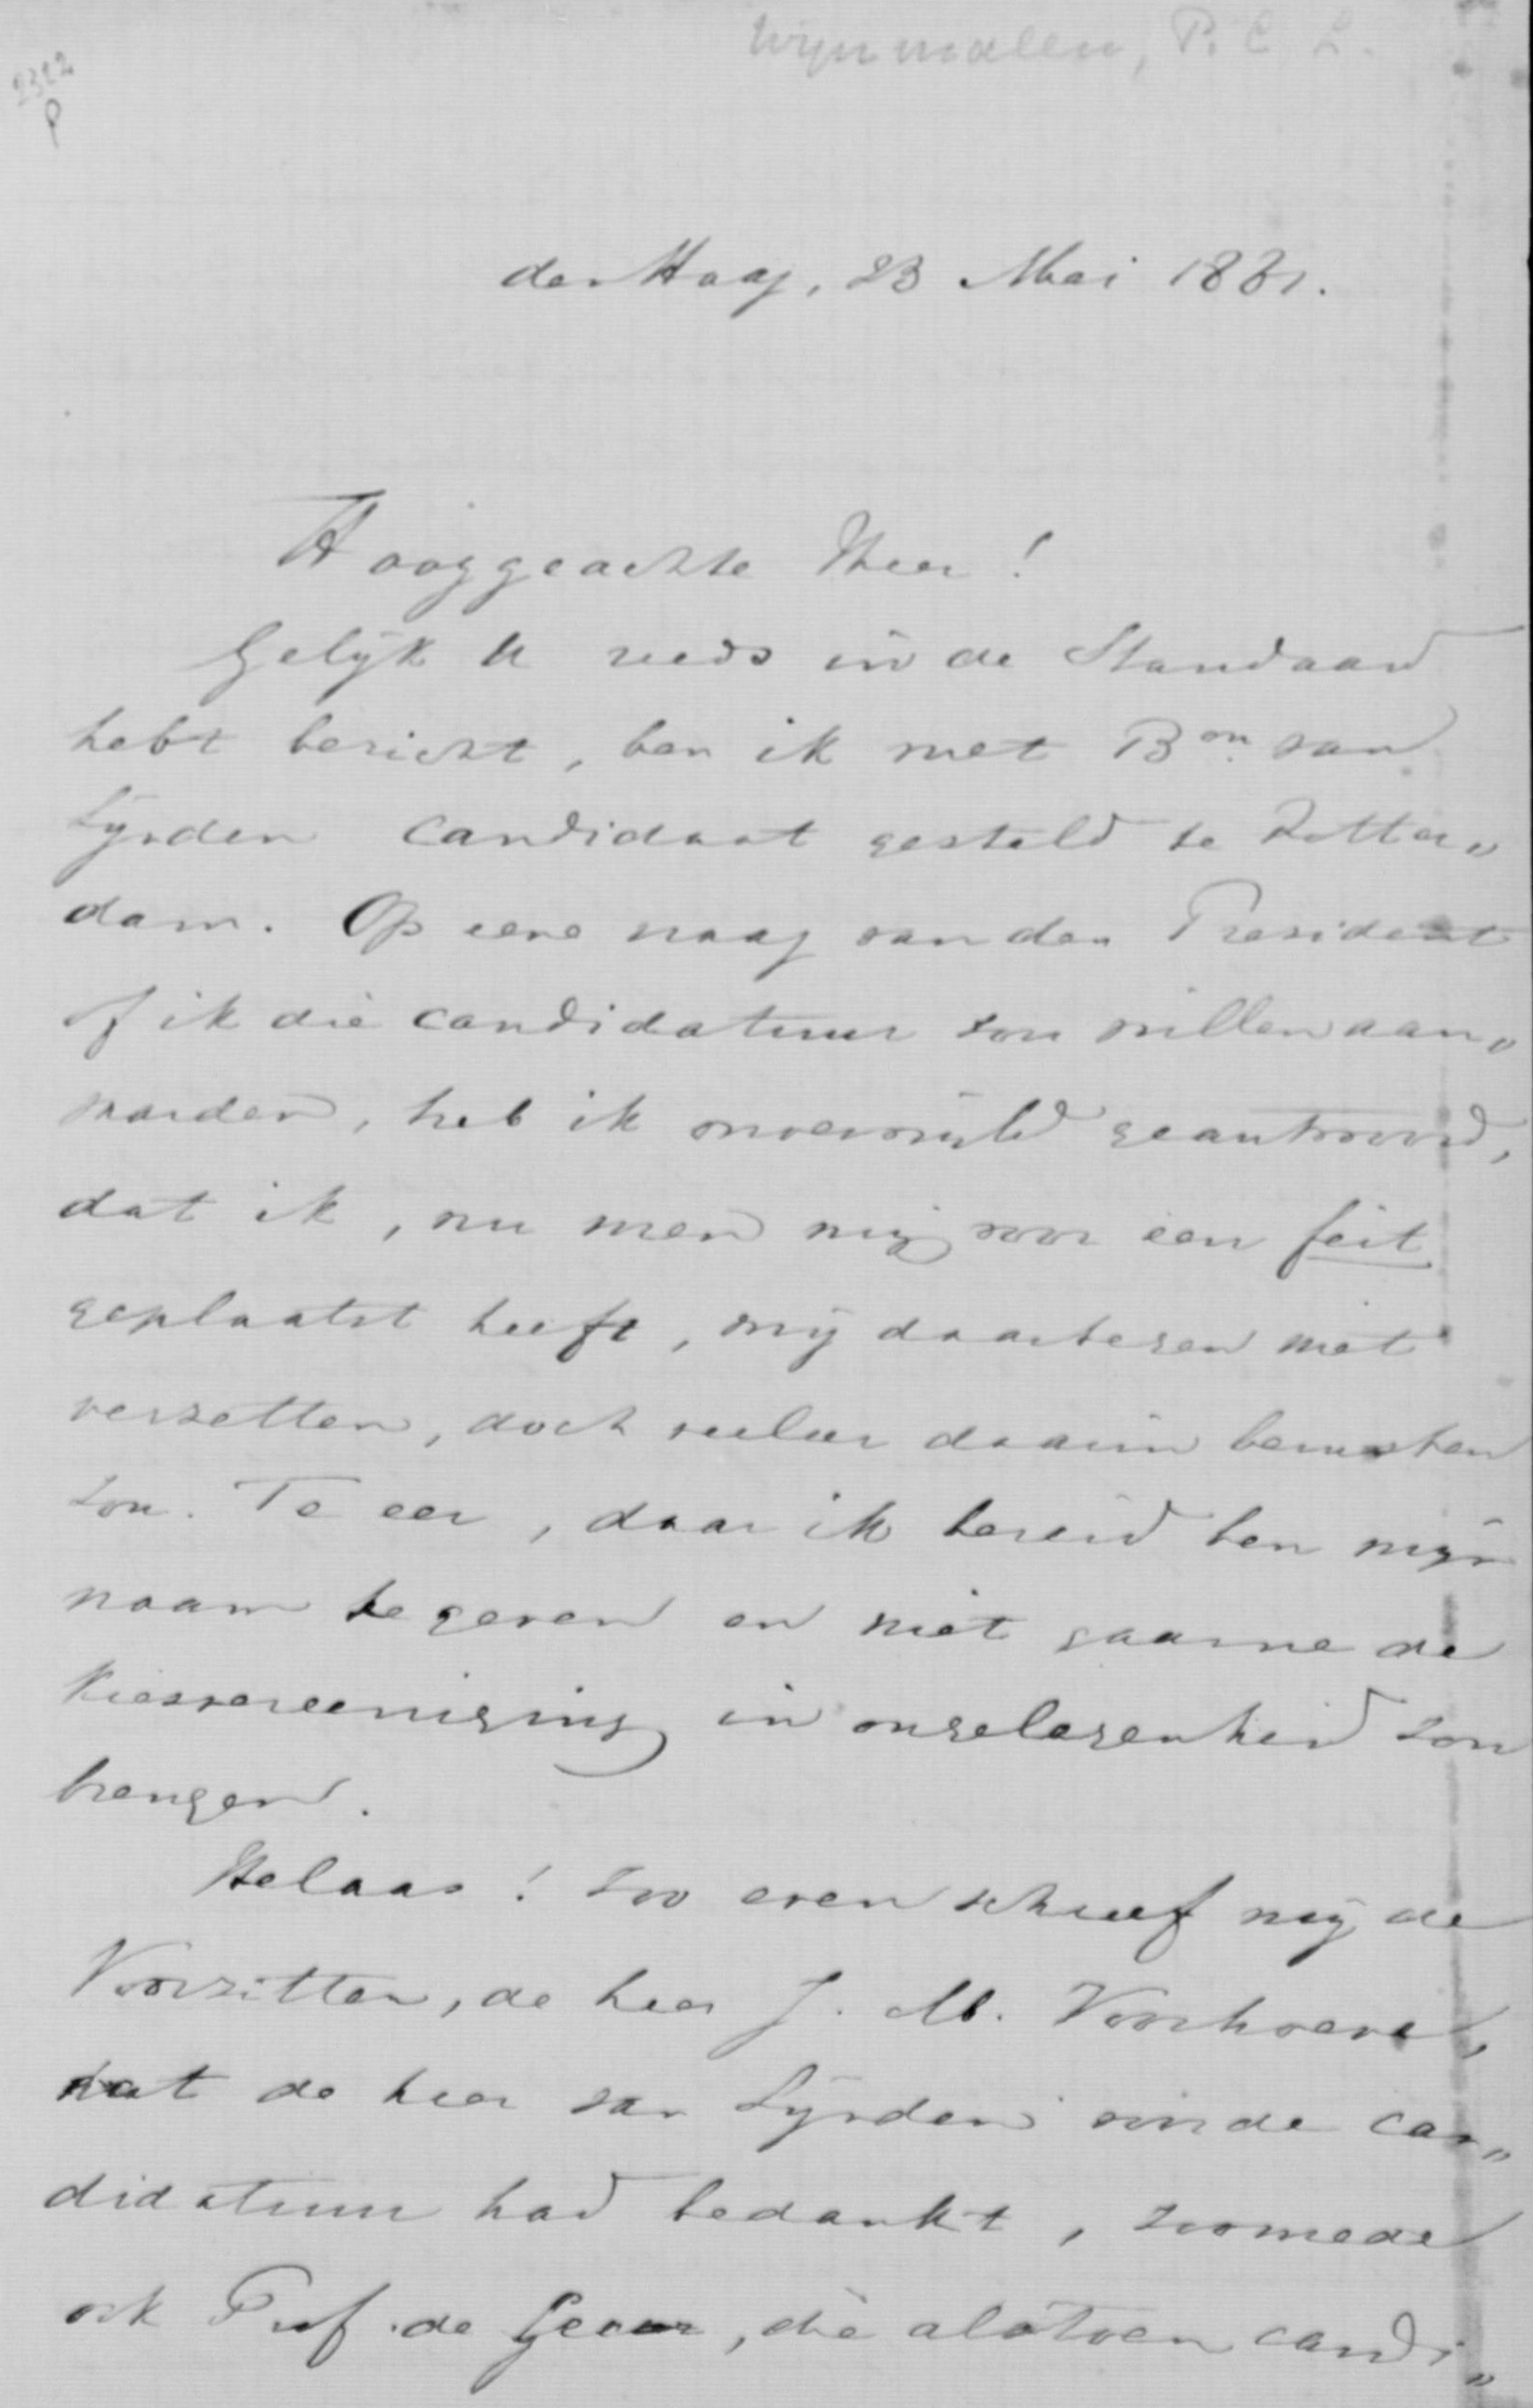 Wijnmalen, T. C. L.
2322
P
den Haag, 23 Mei 1881.
Hooggeachte Heer!
Gelijk U reeds in de Standaard
hebt bericht, ben ik met Bon. van
Lijnden candidaat gesteld te Rotter„
dam. Op eene vraag van den President
of ik die candidatuur zou willen aan„
vaarden, heb ik onverwijld geantwoord,
dat ik, nu men mij voor een feit
geplaatst heeft, mij daartegen niet
verzetten, doch veeleer daarin berusten
zou. Te eer, daar ik bereid ben mijn
naam te geven en niet gaarne de
Kiesvereeniging in ongelegenheid zou
brengen.
Helaas! zoo even schreef mij de
Voorzitter, de heer J. M. Voorhoeve,
dat de heer van Lijnden voor de can„
didatuur had bedankt, zoomede
ook Prof. de Geer, die alstoen candi„